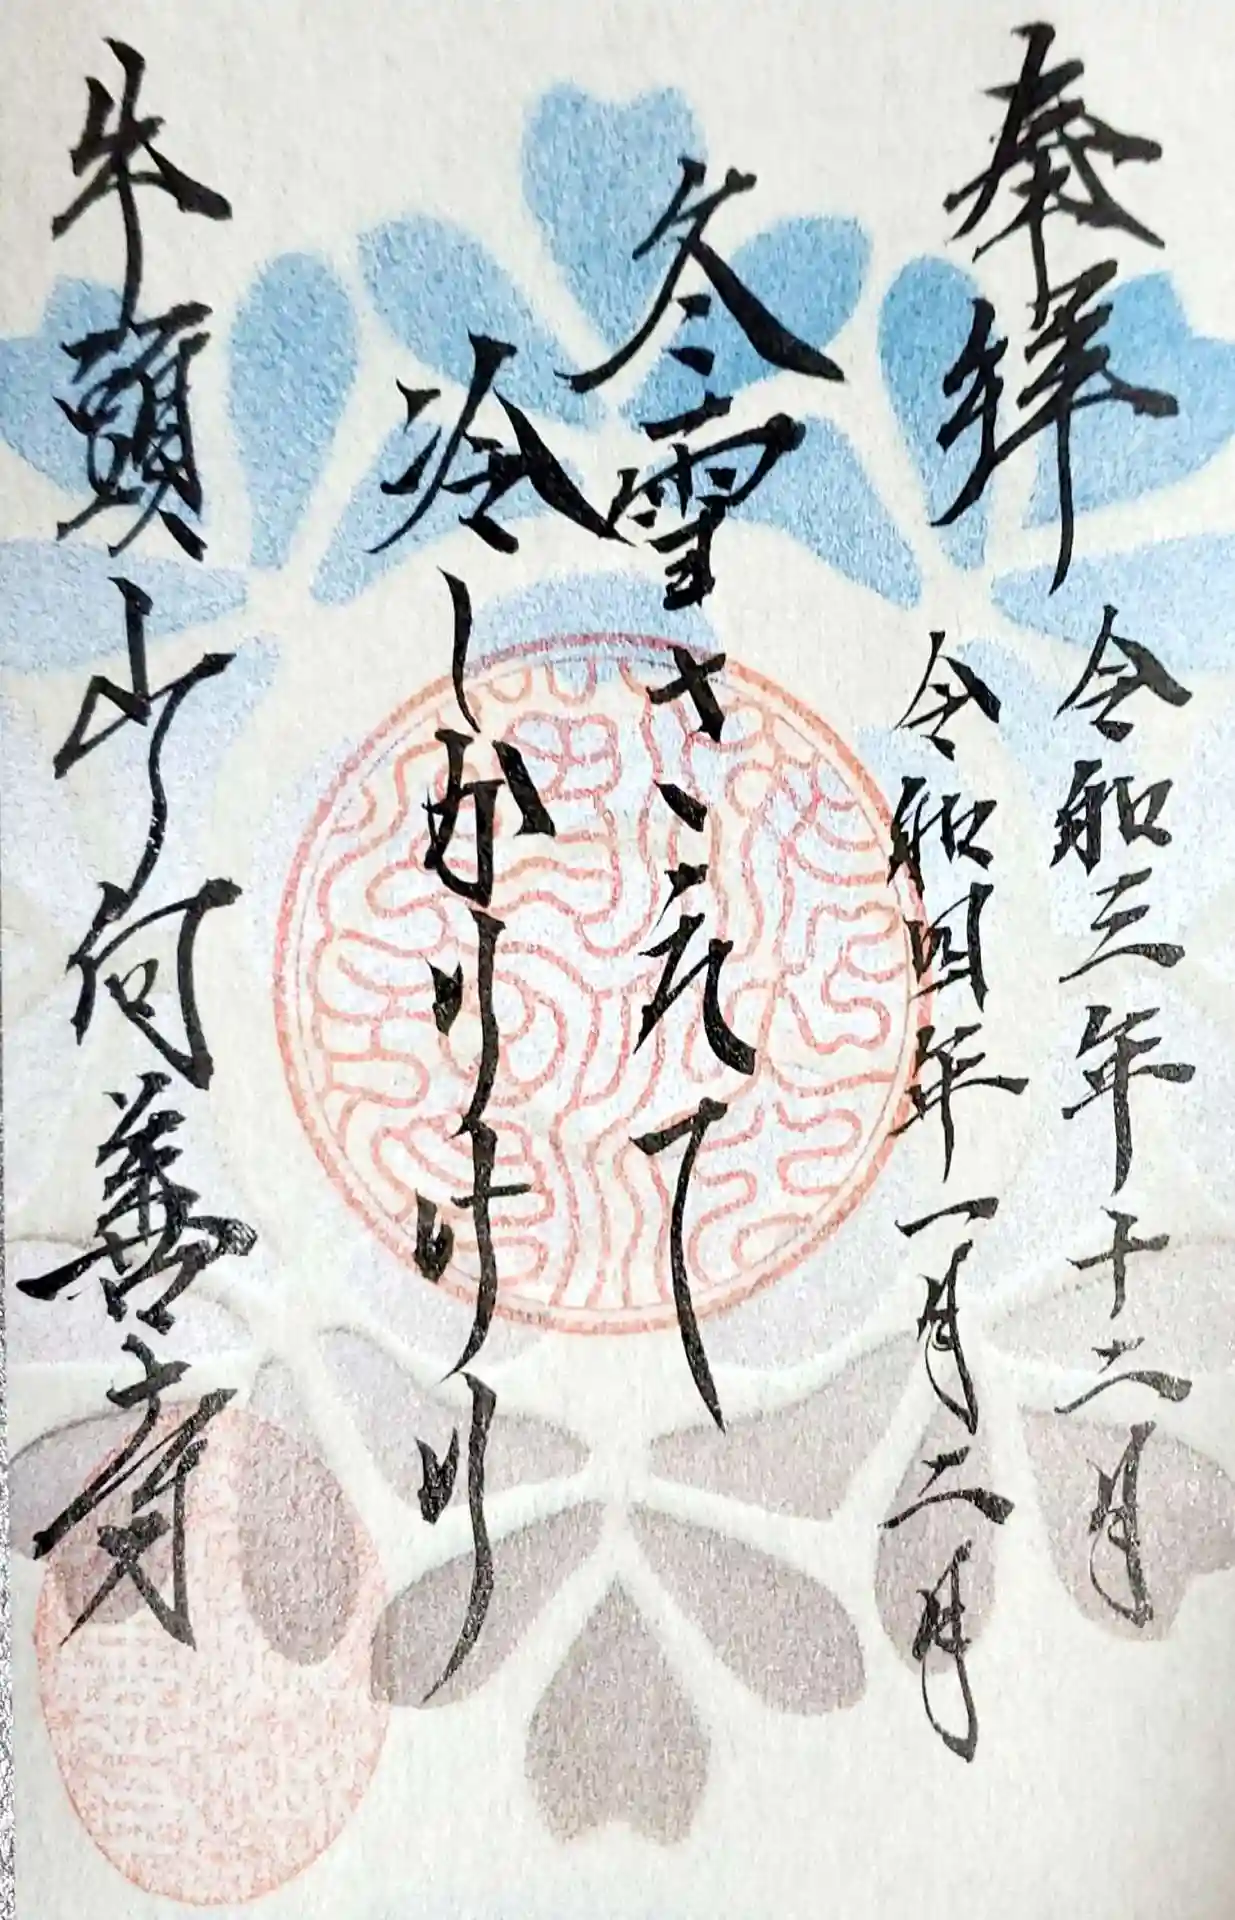 奉拝
令和三年十二月
令和四年一月二月
冬雪さえて
冷しかりけり
牛頭山向善寺